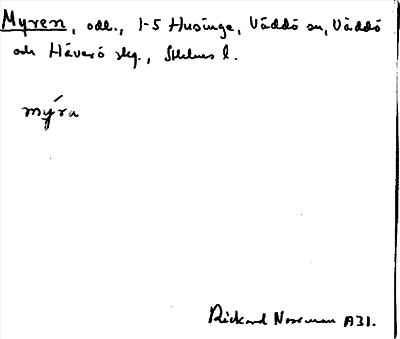 Myren, odl., 1-5 Husinge, Väddö sn, Väddö
och Häverö skg., Sthlms l.
mýra
Rickard Norrman A31.